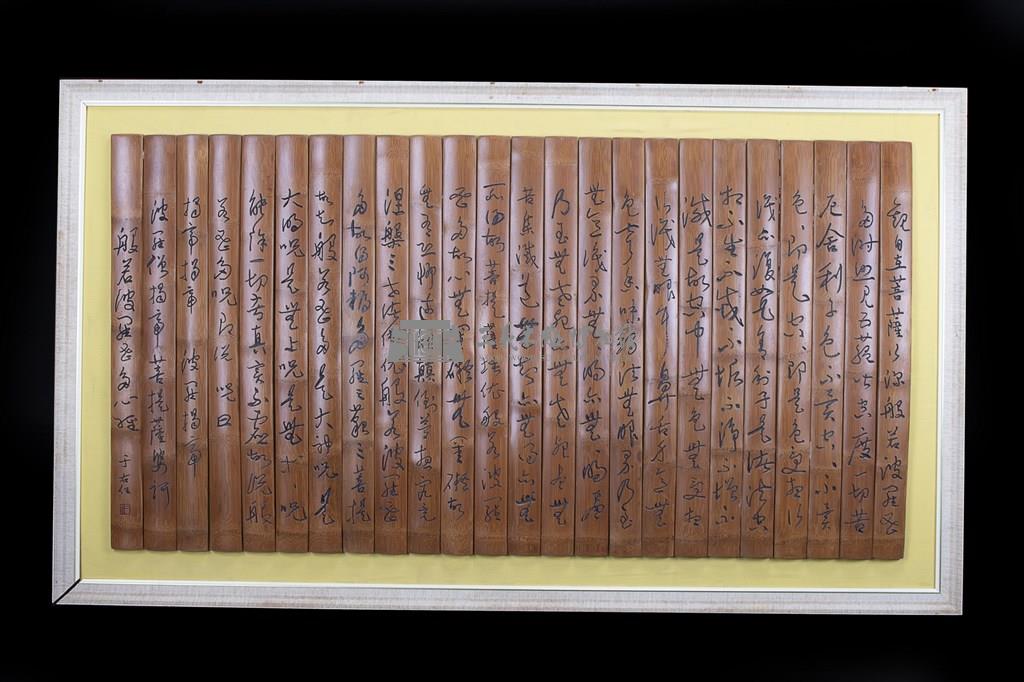 觀自在菩薩行深般若波羅蜜
多時照見五蘊皆空度一切苦
厄舍利子色不異空空不異
色色即是空空即是色受想行
識亦復如是舍利子是諸法空
相不生不滅不垢不淨不增不
減是故空中無色無受想
行識無眼耳鼻舌身意無
色聲香味觸法無眼界乃至
無意識界無無明亦無無明盡
乃至無老死亦無老死盡無
苦集滅道無智亦無得以無
所得故菩提薩埵依般若波羅
蜜多故心無罣礙無罣礙故
無有恐怖遠離顛倒夢想究竟
涅槃三世諸佛依般若波羅蜜
多故得阿耨多羅三藐三菩提
故知般若蜜多是大神呪是
大明呪是無上呪是無等等呪
能除一切苦真實不虛故說般
若蜜多呪即說呪曰
揭帝揭帝 波羅揭帝
波羅僧揭帝菩提薩婆訶
般若波羅蜜多心經 于右任